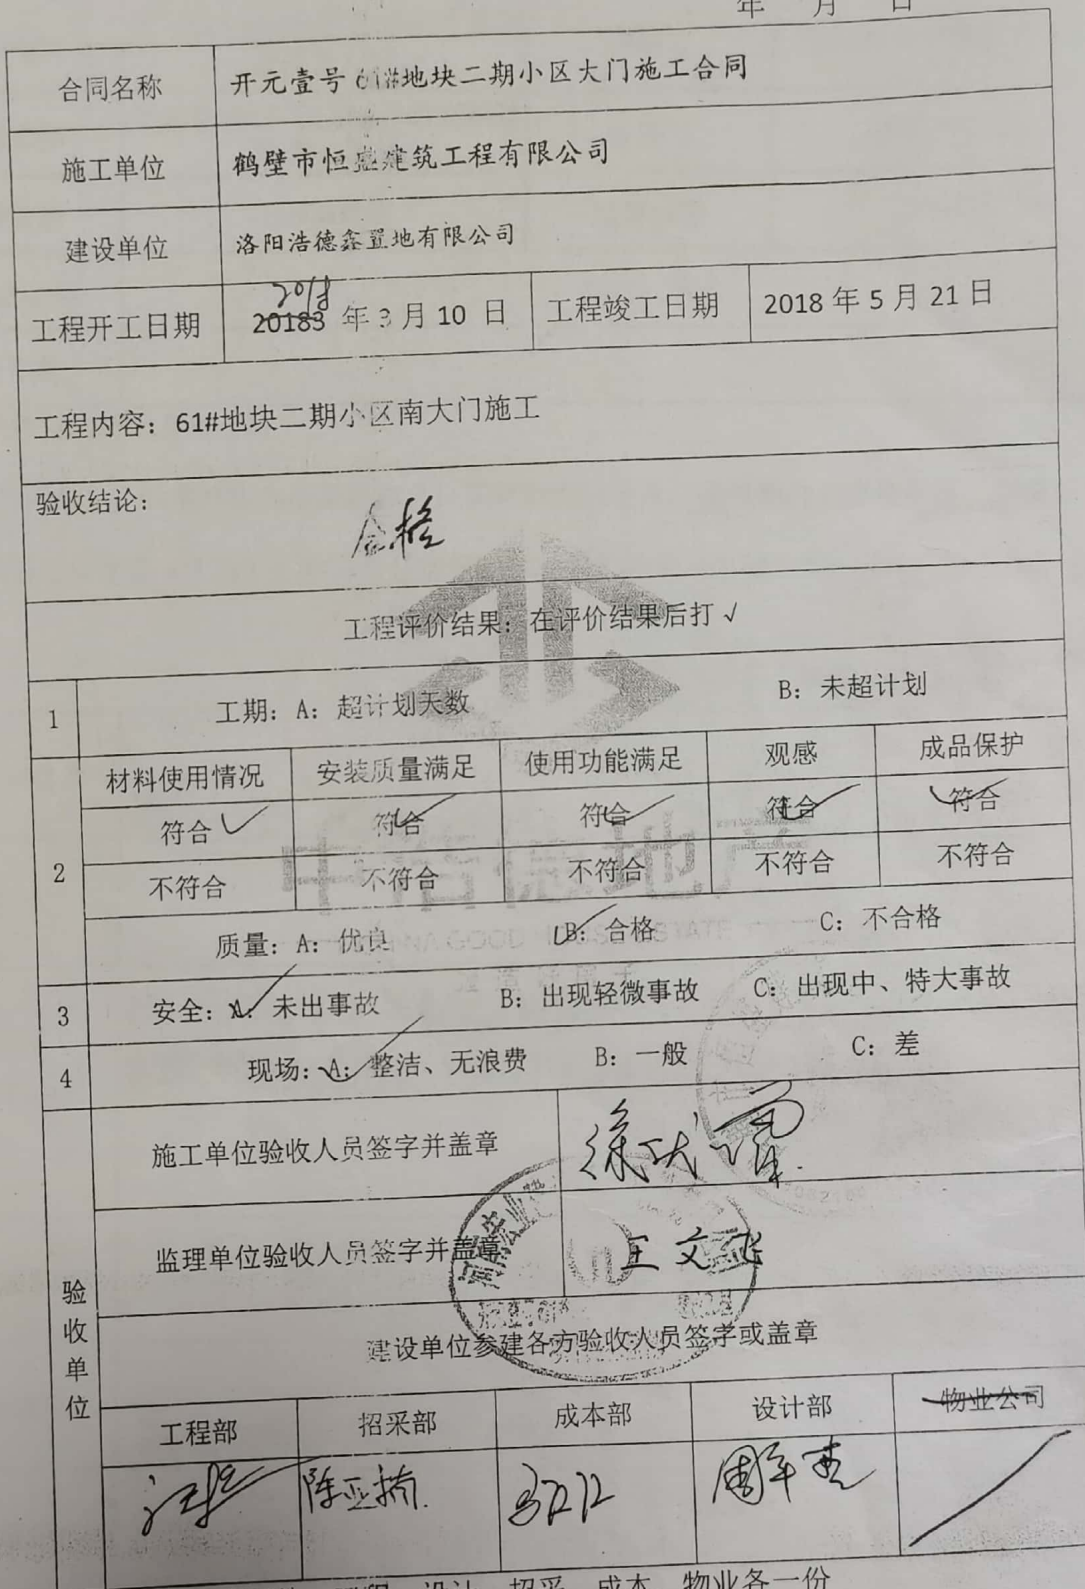 年 月 日
合同名称 开元壹号61#地块二期小区大门施工合同
施工单位 鹤壁市恒盛建筑工程有限公司
建设单位 洛阳浩德鑫置地有限公司
2018
工程开工日期 20183 年 3 月 10 日 工程竣工日期 2018 年 5 月 21 日
工程内容：61#地块二期小区南大门施工
验收结论：
合格
工程评价结果：在评价结果后打√
1 工期：A：超计划天数 B：未超计划
材料使用情况 安装质量满足 使用功能满足 观感 成品保护
符合✓ 符合✓ 符合✓ 符合✓ 符合✓
2 不符合 不符合 不符合 不符合 不符合
质量：A：优良 B：合格 C：不合格
3 安全：A：未出事故 B：出现轻微事故 C：出现中、特大事故
4 现场：A：整洁、无浪费 B：一般 C：差
施工单位验收人员签字并盖章
监理单位验收人员签字并盖章 王文
验收单位
建设单位参建各方验收人员签字或盖章
工程部 招采部 成本部 设计部 物业公司
陈亚楠
设计 招采 成本 物业各一份